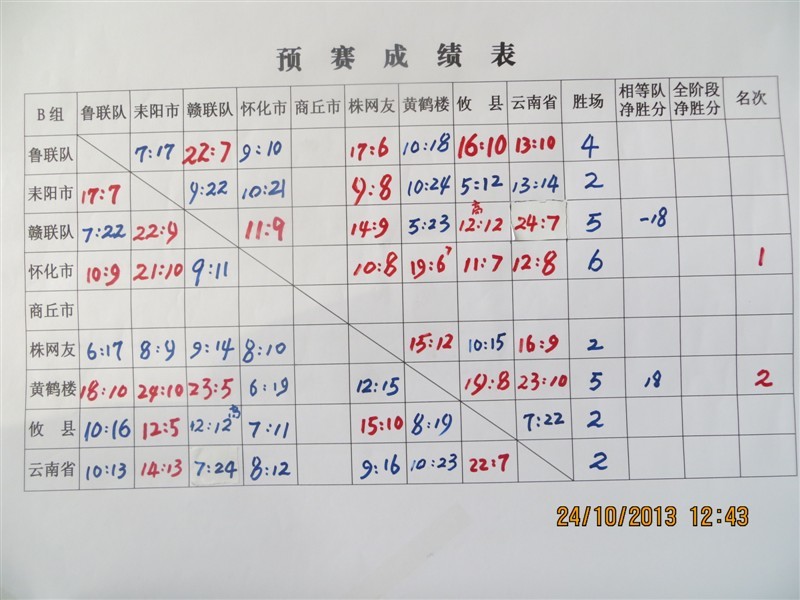 预赛成绩表
B组 鲁联队 耒阳市 赣联队 怀化市 商丘市 株网友 黄鹤楼 攸县 云南省 胜场 相等队净胜分 全阶段净胜分 名次
鲁联队 7:17 22:7 9:10 17:6 10:18 16:10 13:10 4
耒阳市 17:7 9:22 10:21 9:8 10:24 5:12 13:14 2
赣联队 7:22 22:9 11:9 14:9 5:23 高 12:12 24:7 5 -18
怀化市 10:9 21:10 9:11 10:8 19:6 11:7 12:8 6 1
商丘市
株网友 6:17 8:9 9:14 8:10 15:12 10:15 16:9 2
黄鹤楼 18:10 24:10 23:5 6:19 12:15 19:8 23:10 5 18 2
攸县 10:16 12:5 12:12 高 7:11 15:10 8:19 7:22 2
云南省 10:13 14:13 7:24 8:12 9:16 10:23 22:7 2
24/10/2013 12:43